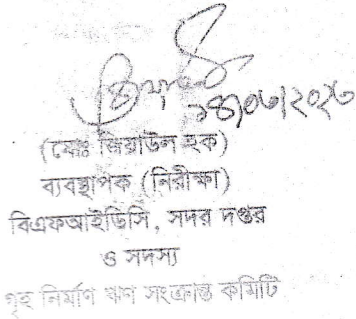 (মোঃ জিয়াউল হক)
ব্যবস্থাপক (নিরীক্ষা)
বিএফআইডিসি, সদর দপ্তর
ও সদস্য
গৃহ নির্মাণ ঋণ সংক্রান্ত কমিটি